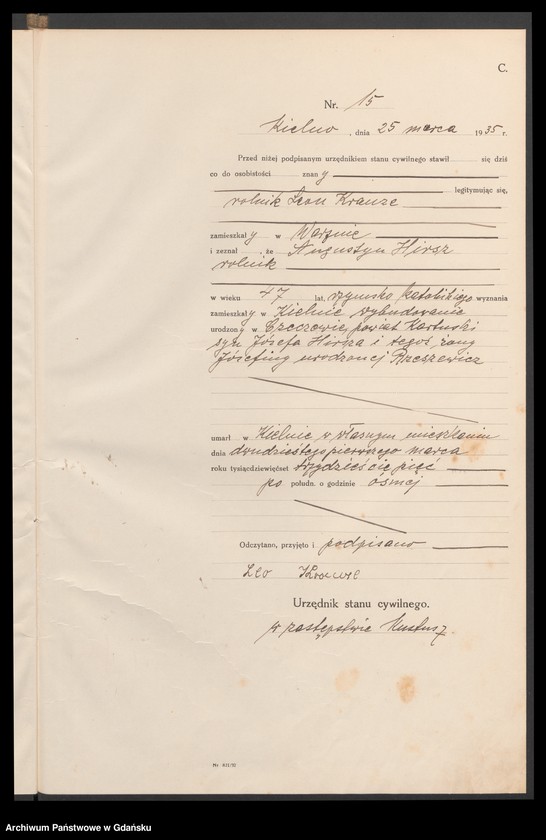 C.
Nr. 15
Kielno, dnia 25 marca 1935 r.
Przed niżej podpisanym urzędnikiem stanu cywilnego stawił się dziś
co do osobistości znany
legitymując się,
rolnik Leon Krause
zamieszkały w Warznie
i zeznał, że Augustyn Hirsz
rolnik
w wieku 47 lat, rzymsko katolickiego wyznania
zamieszkały w Kielnie wybudowanie
urodzony w Czeczewie, powiat Kartuski
syn Józefa Hirsza i tegoż żony
Józefiny urodzonej Brzeszewicz
umarł w Kielnie w własnym mieszkaniu
dnia dwudziestego pierwszego marca
roku tysiącdziewięćset trzydzieście pięć
po połudn. o godzinie ósmej
Odczytano, przyjęto i podpisano
Leo Krause
Urzędnik stanu cywilnego.
w zastępstwie
Nr 631/32
Archiwum Państwowe w Gdańsku